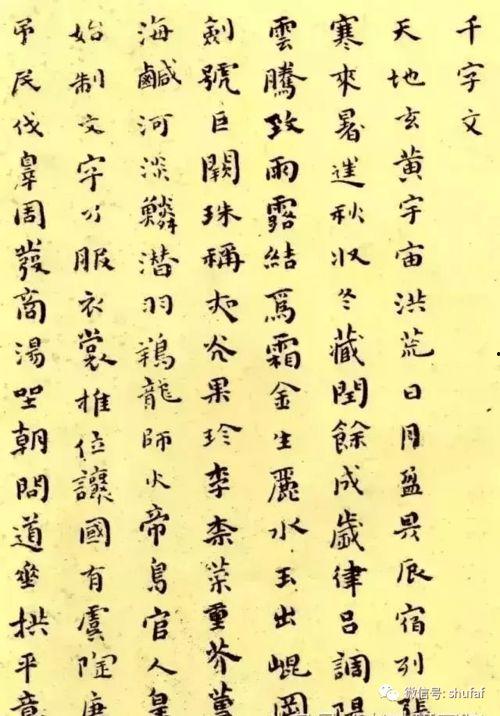 千字文
天地玄黃宇宙洪荒日月盈昃辰宿列張
寒來暑往秋収冬藏閏餘成歲律呂調陽
雲騰致雨露結爲霜金生麗水玉出崐岡
劍號巨闕珠稱夜光果珍李柰菜重芥薑
海鹹河淡鱗潛羽翔龍師火帝鳥官人皇
始制文字乃服衣裳推位讓國有虞陶唐
弔民伐辠周發商湯坐朝問道垂拱平章
微信号: shufaf